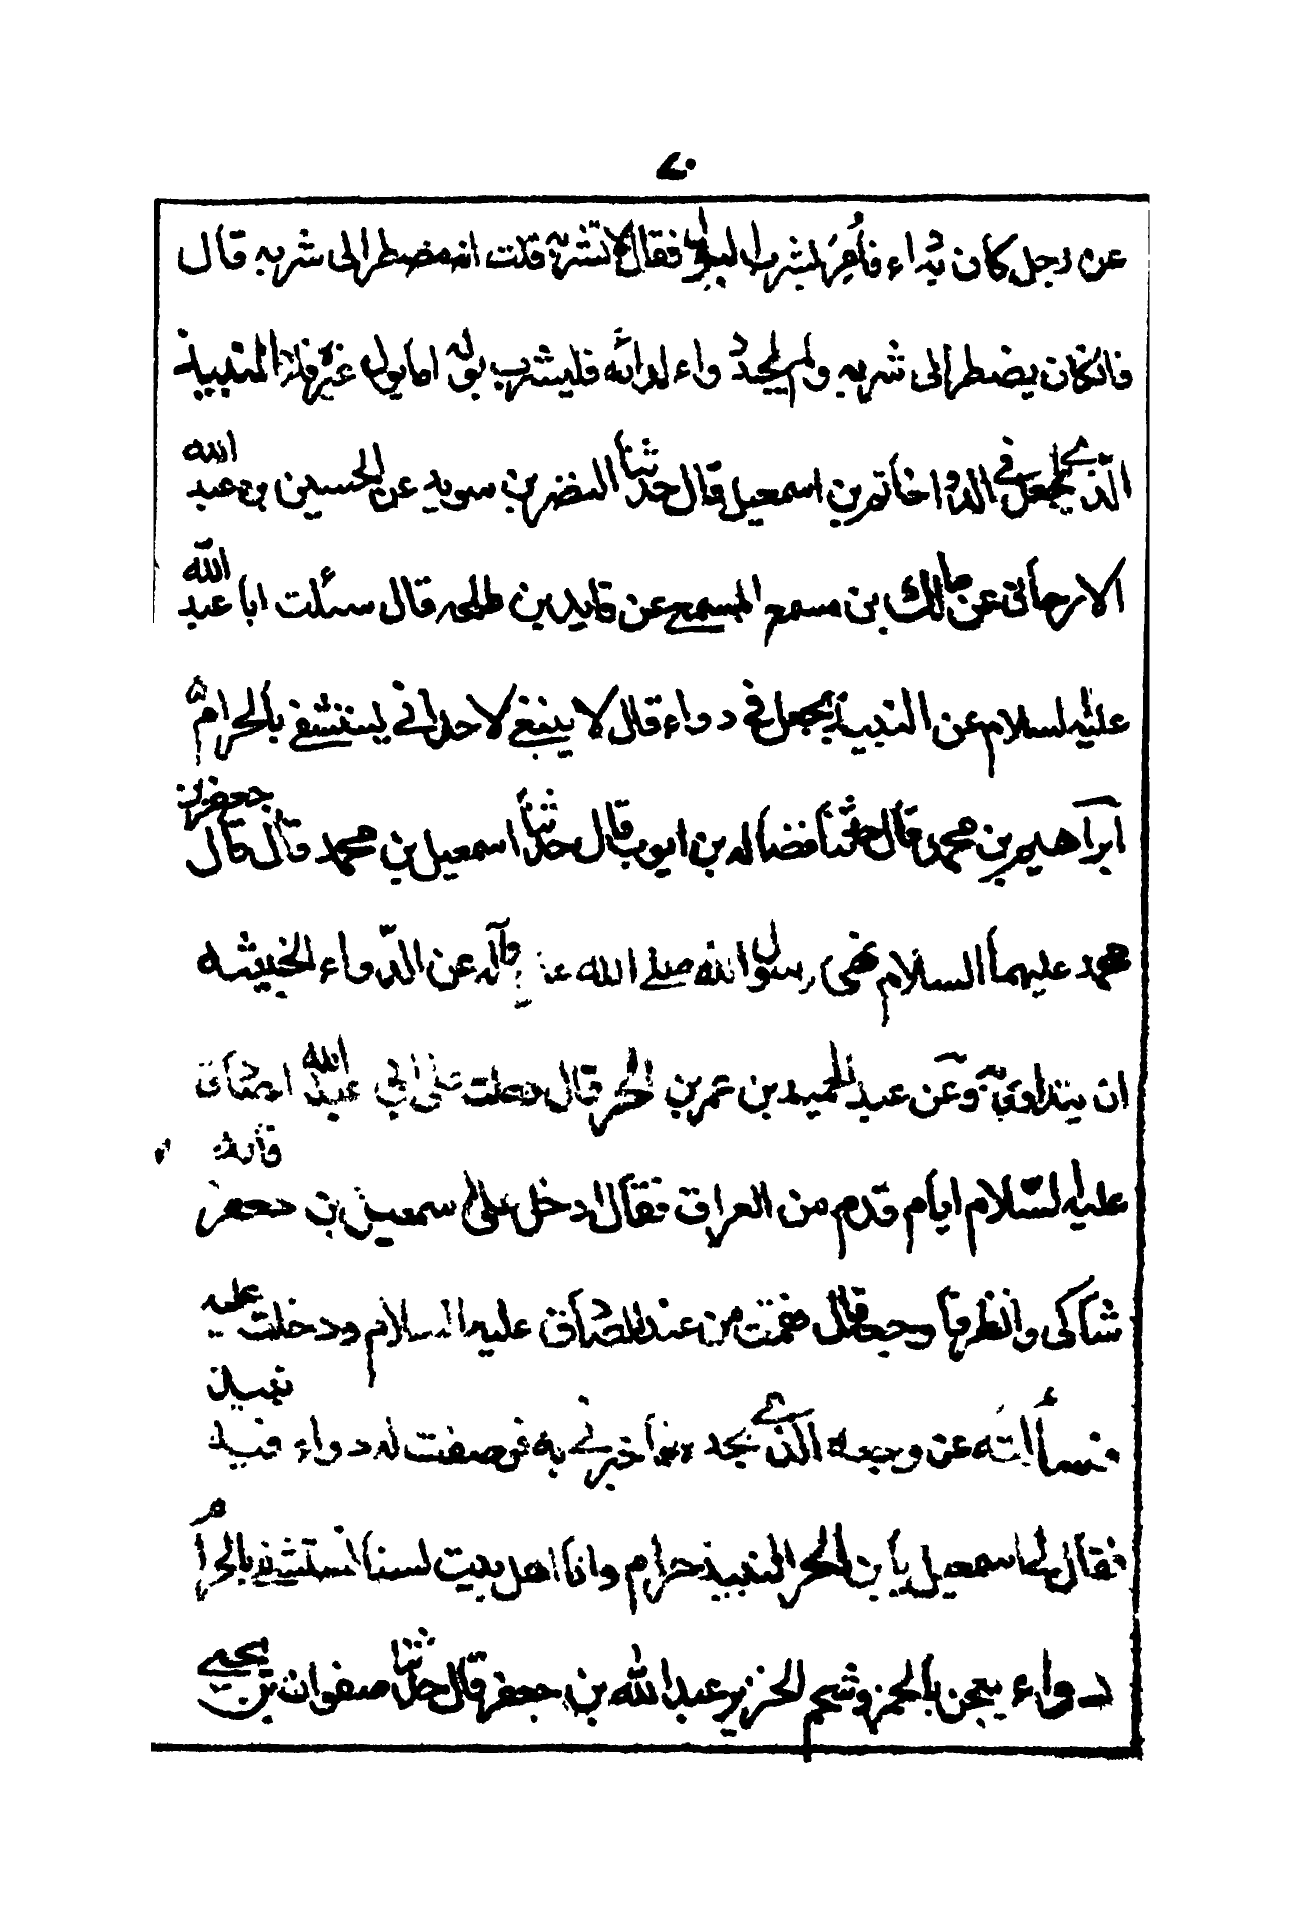 ٧٠
عن رجل كان به داء فأمر لشرب البول فقال لا تشربه قلت انه مضطر الى شربه قال
فانكان يضطر الى شربه ولم يجد دواء لدائه فليشرب بوله اما بول غيره فلا النبيذ
الذي يجعل في الدواء حاتم بن اسمعيل قال حدثنا النضر بن سويد عن الحسين بن عبد الله
الارجاني عن مالك بن مسمع المسمعي عن قايد بن طلحه قال سئلت ابا عبد الله
عليه لسلام عن النبيذ يجعل في دواء قال لا ينبغي لاحد اني يستشفي بالحرام
ابراهيم بن محمد قال حدثنا فضاله بن ايوب قال حدثنا اسمعيل بن محمد قال قال جعفر بن
محمد عليهما السلام نهى رسول الله صلى الله عليه وآله عن الدّواء الخبيثه
ان يتداوى به وعن عبد الحميد بن عمر بن الحر قال دخلت على ابي عبد الله الصادق
عليه لسّلام ايام قدم من العراق فقال ادخل على اسمعيل بن جعفر فأنه
شاكى وانظر ما وجعه قال فقمت من عند الصادق عليه السلام ودخلت عليه
فسألته عن وجعه الذي يجد فاخبرني به فوصفت له دواء فيه نبيذ
فقال لي اسمعيل يا بن الحر النبيذ حرام وانا اهل بيت لسنا نستشفي بالحرام
دواء يعجن بالخمر وشحم الخنزير عبد الله بن جعفر قال حدثنا صفوان بن يحيى